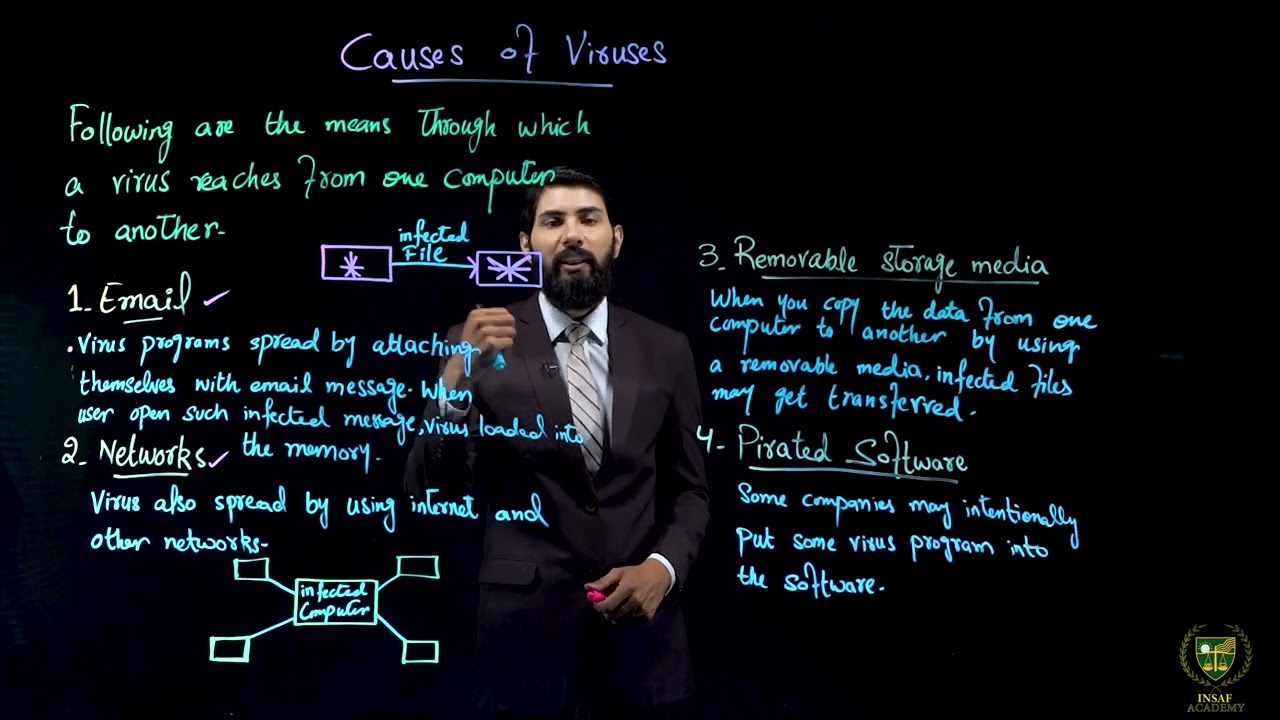 Causes of Viruses
Following are the means Through which
a virus reaches From one computer
to another.
infected
File
1. Email ✓
. Virus programs spread by attaching
themselves with email message. When
user open such infected message, virus loaded into
the memory.
2. Networks ✓
Virus also spread by using internet and
other networks.
infected
Computer
3. Removable storage media
When you copy the data From one
computer to another by using
a removable media, infected Files
may get transferred.
4. Pirated Software
Some companies may intentionally
Put some virus program into
the software.
INSAF
ACADEMY